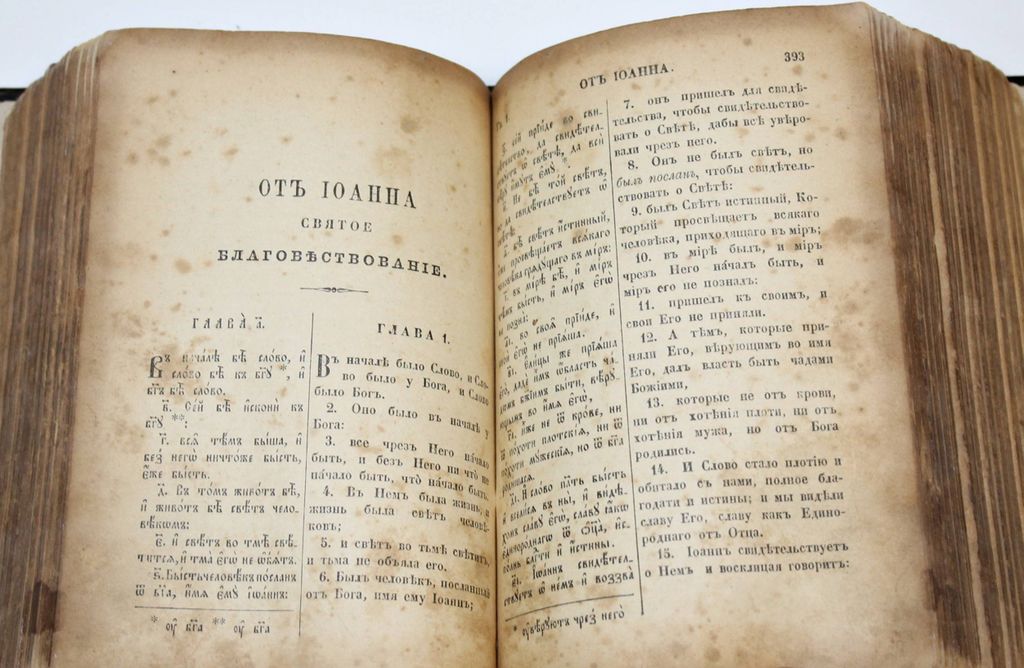 ОТЪ ІОАННА
СВЯТОЕ
БЛАГОВѢСТВОВАНІЕ.
ГЛАВА̀ а҃.
Въ нача́лѣ бѣ̀ сло́во, и҆
сло́во бѣ̀ къ бг҃ꙋ *, и҆
бг҃ъ бѣ̀ сло́во.
в҃. Се́й бѣ̀ и҆сконѝ къ
бг҃ꙋ **:
г҃. всѧ̑ тѣ́мъ бы́ша, и҆
без̾ негѡ̀ ничто́же бы́сть,
є҆́же бы́сть.
д҃. Въ то́мъ живо́тъ бѣ̀,
и҆ живо́тъ бѣ̀ свѣ́тъ чело-
вѣ́кѡмъ:
є҃. и҆ свѣ́тъ во тмѣ̀ свѣ́-
титсѧ, и҆ тма̀ є҆гѡ̀ не ѡ҆б̾ѧ́тъ.
ѕ҃. Бы́сть человѣ́къ по́сланъ
ѿ бг҃а, и҆́мѧ є҆мꙋ̀ і҆ѡа́ннъ:
* оу҆ бг҃а ** оу҆ бг҃а
ГЛАВА 1.
Въ началѣ было Слово, и Сло-
во было у Бога, и Слово
было Богъ.
2. Оно было въ началѣ у
Бога:
3. все чрезъ Него на́чало
быть, и безъ Него ни что не
на́чало быть, что̀ на́чало быть.
4. Въ Немъ была жизнь, и
жизнь была свѣтъ человѣ-
ковъ;
5. и свѣтъ во тьмѣ свѣтитъ,
и тьма не объяла его.
6. Былъ человѣкъ, посланный
отъ Бога, имя ему Іоаннъ;
ОТЪ ІОАННА.
393
з҃. се́й прїи́де во сви-
, да свидѣ́тел-
ѡ҆ свѣ́тѣ, да всѝ
и҆́мꙋтъ є҆мꙋ̀ *.
и҃. Не бѣ̀ то́й свѣ́тъ,
но да свидѣ́тельствꙋетъ ѡ҆
свѣ́тѣ:
бѣ̀ свѣ́тъ и҆́стинный,
просвѣща́етъ всѧ́каго
человѣ́ка грѧдꙋ́щаго въ мі́ръ:
і҃. въ мі́рѣ бѣ̀, и҆ мі́ръ
тѣ́мъ бы́сть, и҆ мі́ръ є҆гѡ̀
не позна̀:
а҃і. во своѧ̑ прїи́де, и҆
своѝ є҆гѡ̀ не прїѧ́ша.
в҃і. Є҆ли́цы же прїѧ́ша
є҆го̀, дадѐ и҆̀мъ ѡ҆́бласть ча́-
дѡмъ бж҃їимъ бы́ти, вѣ́рꙋ-
ющымъ во и҆́мѧ є҆гѡ̀,
г҃і. и҆̀же не ѿ кро́ве, ни
ѿ по́хоти плотскі́ѧ, ни ѿ
по́хоти мꙋ́жескїѧ, но ѿ бг҃а
роди́шасѧ.
д҃і. И҆ сло́во пло́ть бы́сть
и҆ всели́сѧ въ ны̀, и҆ ви́дѣ-
хомъ сла́вꙋ є҆гѡ̀, сла́вꙋ ꙗ҆́кѡ
є҆диноро́днагѡ ѿ ѻ҆ц҃а̀, и҆с-
по́лнь блг҃да́ти и҆ и҆́стины.
е҃і. І҆ѡа́ннъ свидѣ́тель-
ствꙋетъ ѡ҆ не́мъ и҆ воззва̀
* оу҆вѣ́рꙋютъ чрез̾ него̀
7. онъ пришелъ для свидѣ-
тельства, чтобы свидѣтельство-
вать о Свѣтѣ, дабы всѣ увѣро-
вали чрезъ него.
8. Онъ не былъ свѣтъ, но
былъ посланъ, чтобы свидѣтель-
ствовать о Свѣтѣ:
9. былъ Свѣтъ истинный, Ко-
торый просвѣщаетъ всякаго
человѣка, приходящаго въ міръ;
10. въ мірѣ былъ, и міръ
чрезъ Него на́чалъ быть, и
міръ его не позналъ:
11. пришелъ къ своимъ, и
свои Его не приняли.
12. А тѣмъ, которые при-
няли Его, вѣрующимъ во имя
Его, далъ власть быть чадами
Божіими,
13. которые не отъ крови,
ни отъ хотѣнія плоти, ни отъ
хотѣнія мужа, но отъ Бога
родились.
14. И Слово стало плотію и
обитало съ нами, полное бла-
годати и истины; и мы видѣли
славу Его, славу какъ Едино-
роднаго отъ Отца.
15. Іоаннъ свидѣтельствуетъ
о Немъ и восклицая говоритъ: